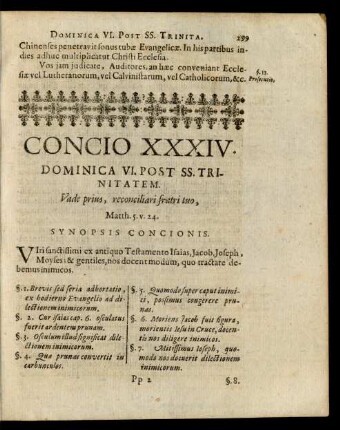 DOMINICA VI. POST SS. TRINITA. 299
Chinenses penetravit sonus tubæ Evangelicæ. In his partibus in-
dies adhuc multiplicatur Christi Ecclesia.
Vos jam judicate, Auditores, an hæc conveniant Eccle-
siæ vel Lutheranorum, vel Calvinistarum, vel Catholicorum, &c.
§. 13.
CONCIO XXXIV.
DOMINICA VI. POST SS. TRI-
NITATEM.
Vade prius, reconciliari fratri tuo,
Matth. 5. v. 24.
SYNOPSIS CONCIONIS.
VIri sanctissimi ex antiquo Testamento Isaias, Jacob, Joseph,
Moyses: & gentiles, nos docent modum, quo tractare de-
bemus inimicos.
§. 1. Brevis sed seria adhortatio,
ex hodierno Evangelio ad di-
lectionem inimicorum.
§. 2. Cur Isaias cap. 6. osculatus
fuerit ardentem prunam.
§. 3. Osculum illud significat di-
lectionem inimicorum.
§. 4. Qua prunas convertit in
carbunculos.
§. 5. Quomodo super caput inimi-
ci, possimus congerere pru-
nas.
§. 6. Moriens Jacob fuit figura,
morientis Iesu in Cruce, docen-
tis nos diligere inimicos.
§. 7. Mitissimus Ioseph, quo-
modo nos docuerit dilectionem
inimicorum.
Pp 2 §. 8.